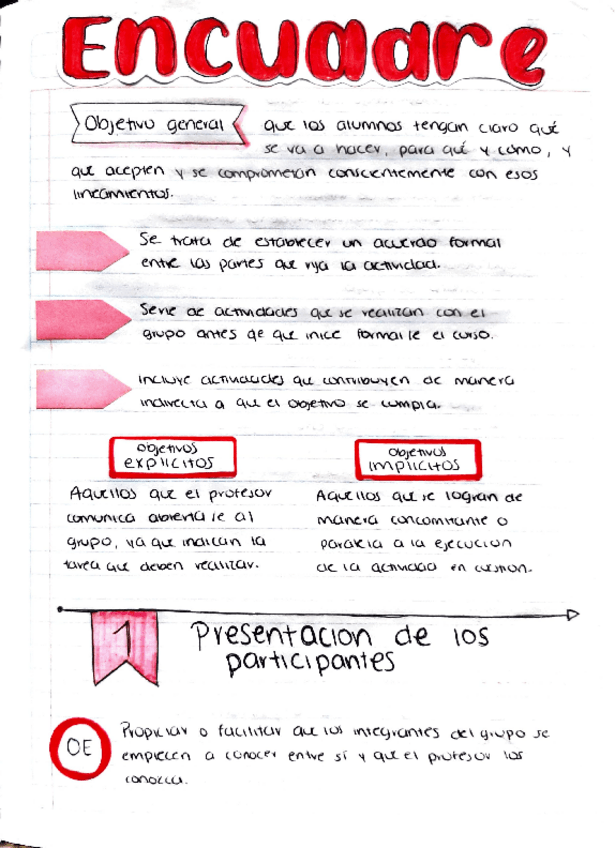 Encuadre
Objetivo general
que los alumnos tengan claro qué
se va a hacer, para qué y cómo, y
que acepten y se comprometan conscientemente con esos
lineamientos.
Se trata de establecer un acuerdo formal
entre las partes que rija la actividad.
Serie de actividades que se realizan con el
grupo antes de que inicie formal/e el curso.
Incluye actividades que contribuyen de manera
indirecta a que el objetivo se cumpla.
Objetivos
explícitos
Aquellos que el profesor
comunica abierta/e al
grupo, ya que indican la
tarea que deben realizar.
Objetivos
implícitos
Aquellos que se logran de
manera concomitante o
paralela a la ejecución
de la actividad en cuestión.
1
Presentacion de los
participantes
OE
Propiciar o facilitar que los integrantes del grupo se
empiecen a conocer entre sí y que el profesor los
conozca.